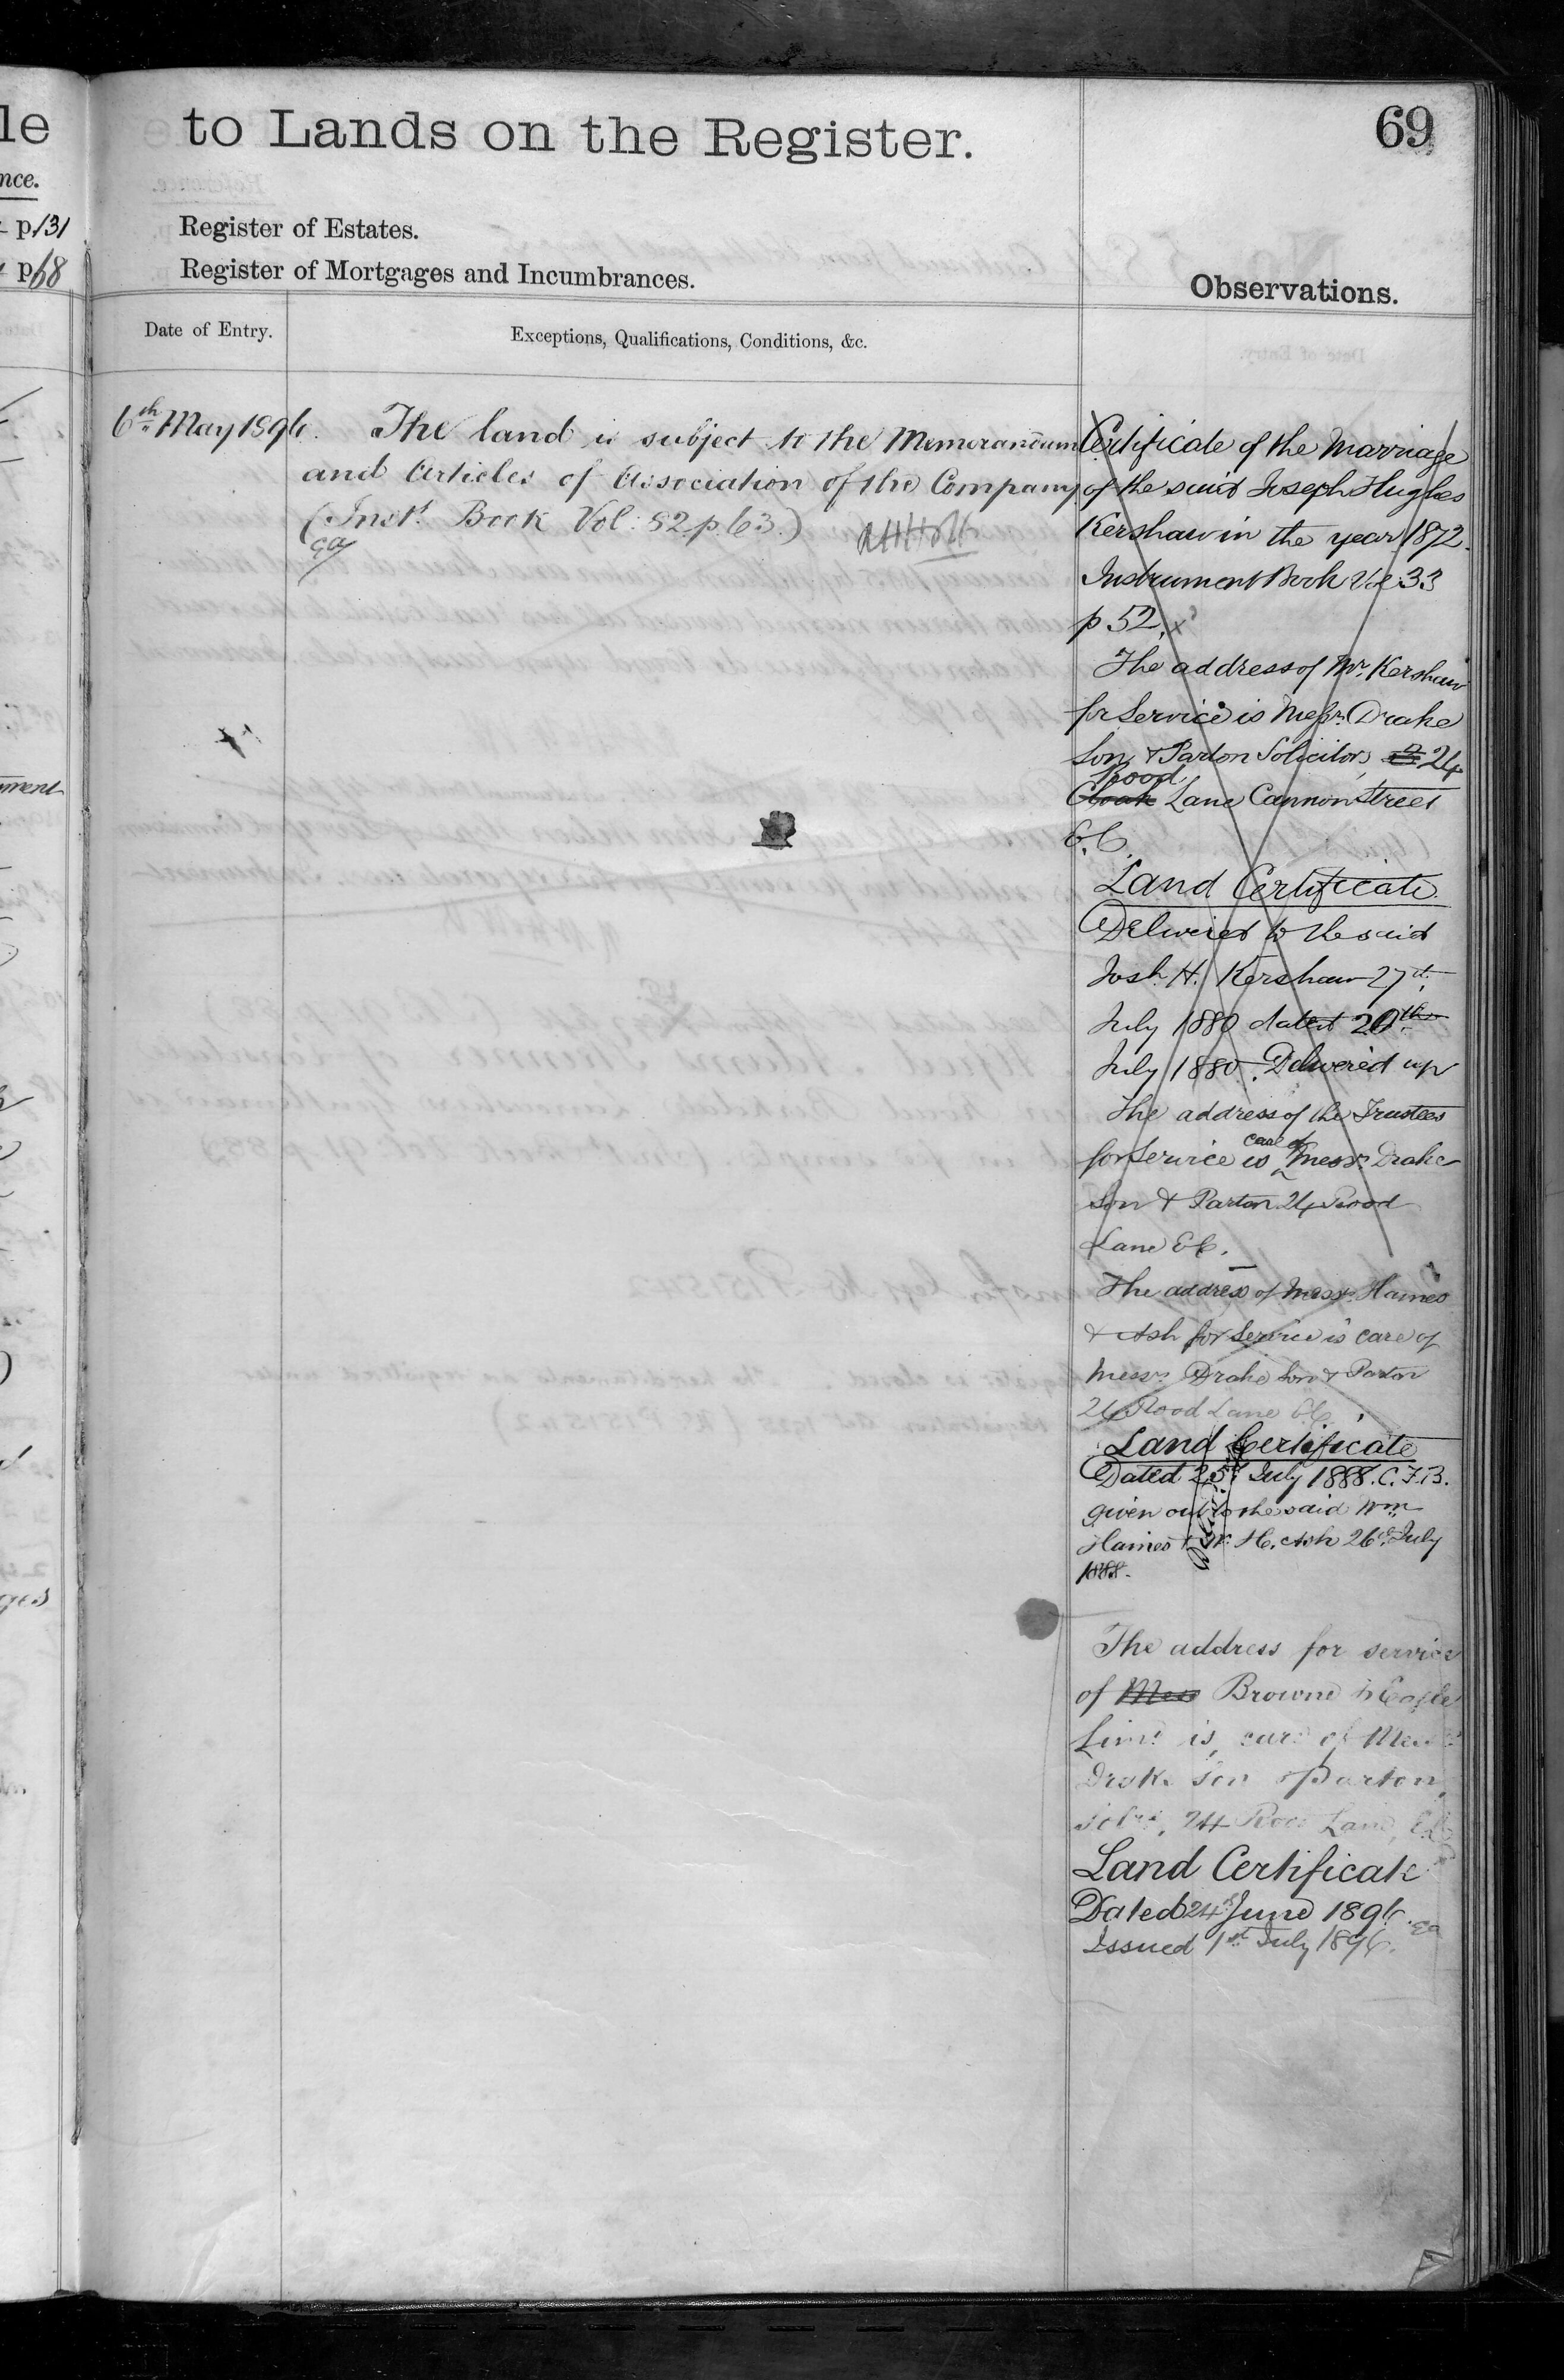 le
nce.
p131
p68
ment
ges
to Lands on the Register.
69
Register of Estates.
Register of Mortgages and Incumbrances.
Observations.
Date of Entry.
Exceptions, Qualifications, Conditions, &c.
6th May 1896.
The land is subject to the Memorandum
and Articles of Association of the Company
(Inst. Book Vol: 52 p. 63.)
Certificate of the Marriage
of the said Joseph Hughes
Kershaw in the year 1872.
Instrument Book Vol 33
p 52. x
The address of Mr. Kershaw
for Service is Messrs. Drake
Son & Parton Solicitors, 24
Rood
Cloak Lane Cannon Street
E.C.
Land Certificate
Delivered to the said
Josh. H. Kershaw 27th.
July 1880 dated 20th
July 1880. Delivered up
The address of the Trustees
care of
for Service is Messrs. Drake
Son & Parton 24 Rood
Lane E.C.
The address of Messrs. Haines
& Ash for Service is care of
Messrs Drake Son & Parton
24 Rood Lane E.C.
Land Certificate
Dated 25th July 1888. C.F.B.
given out to the said Wm
Haines & W. H. Ash 26th July
1888.
The address for service
of Mess Browne & Eagle
Limd. is, care of Messrs
Drake Son & Parton,
Solrs, 24 Rood Lane, E.C.
Land Certificate
Dated 24th June 1896.
Issued 1st July 1896.